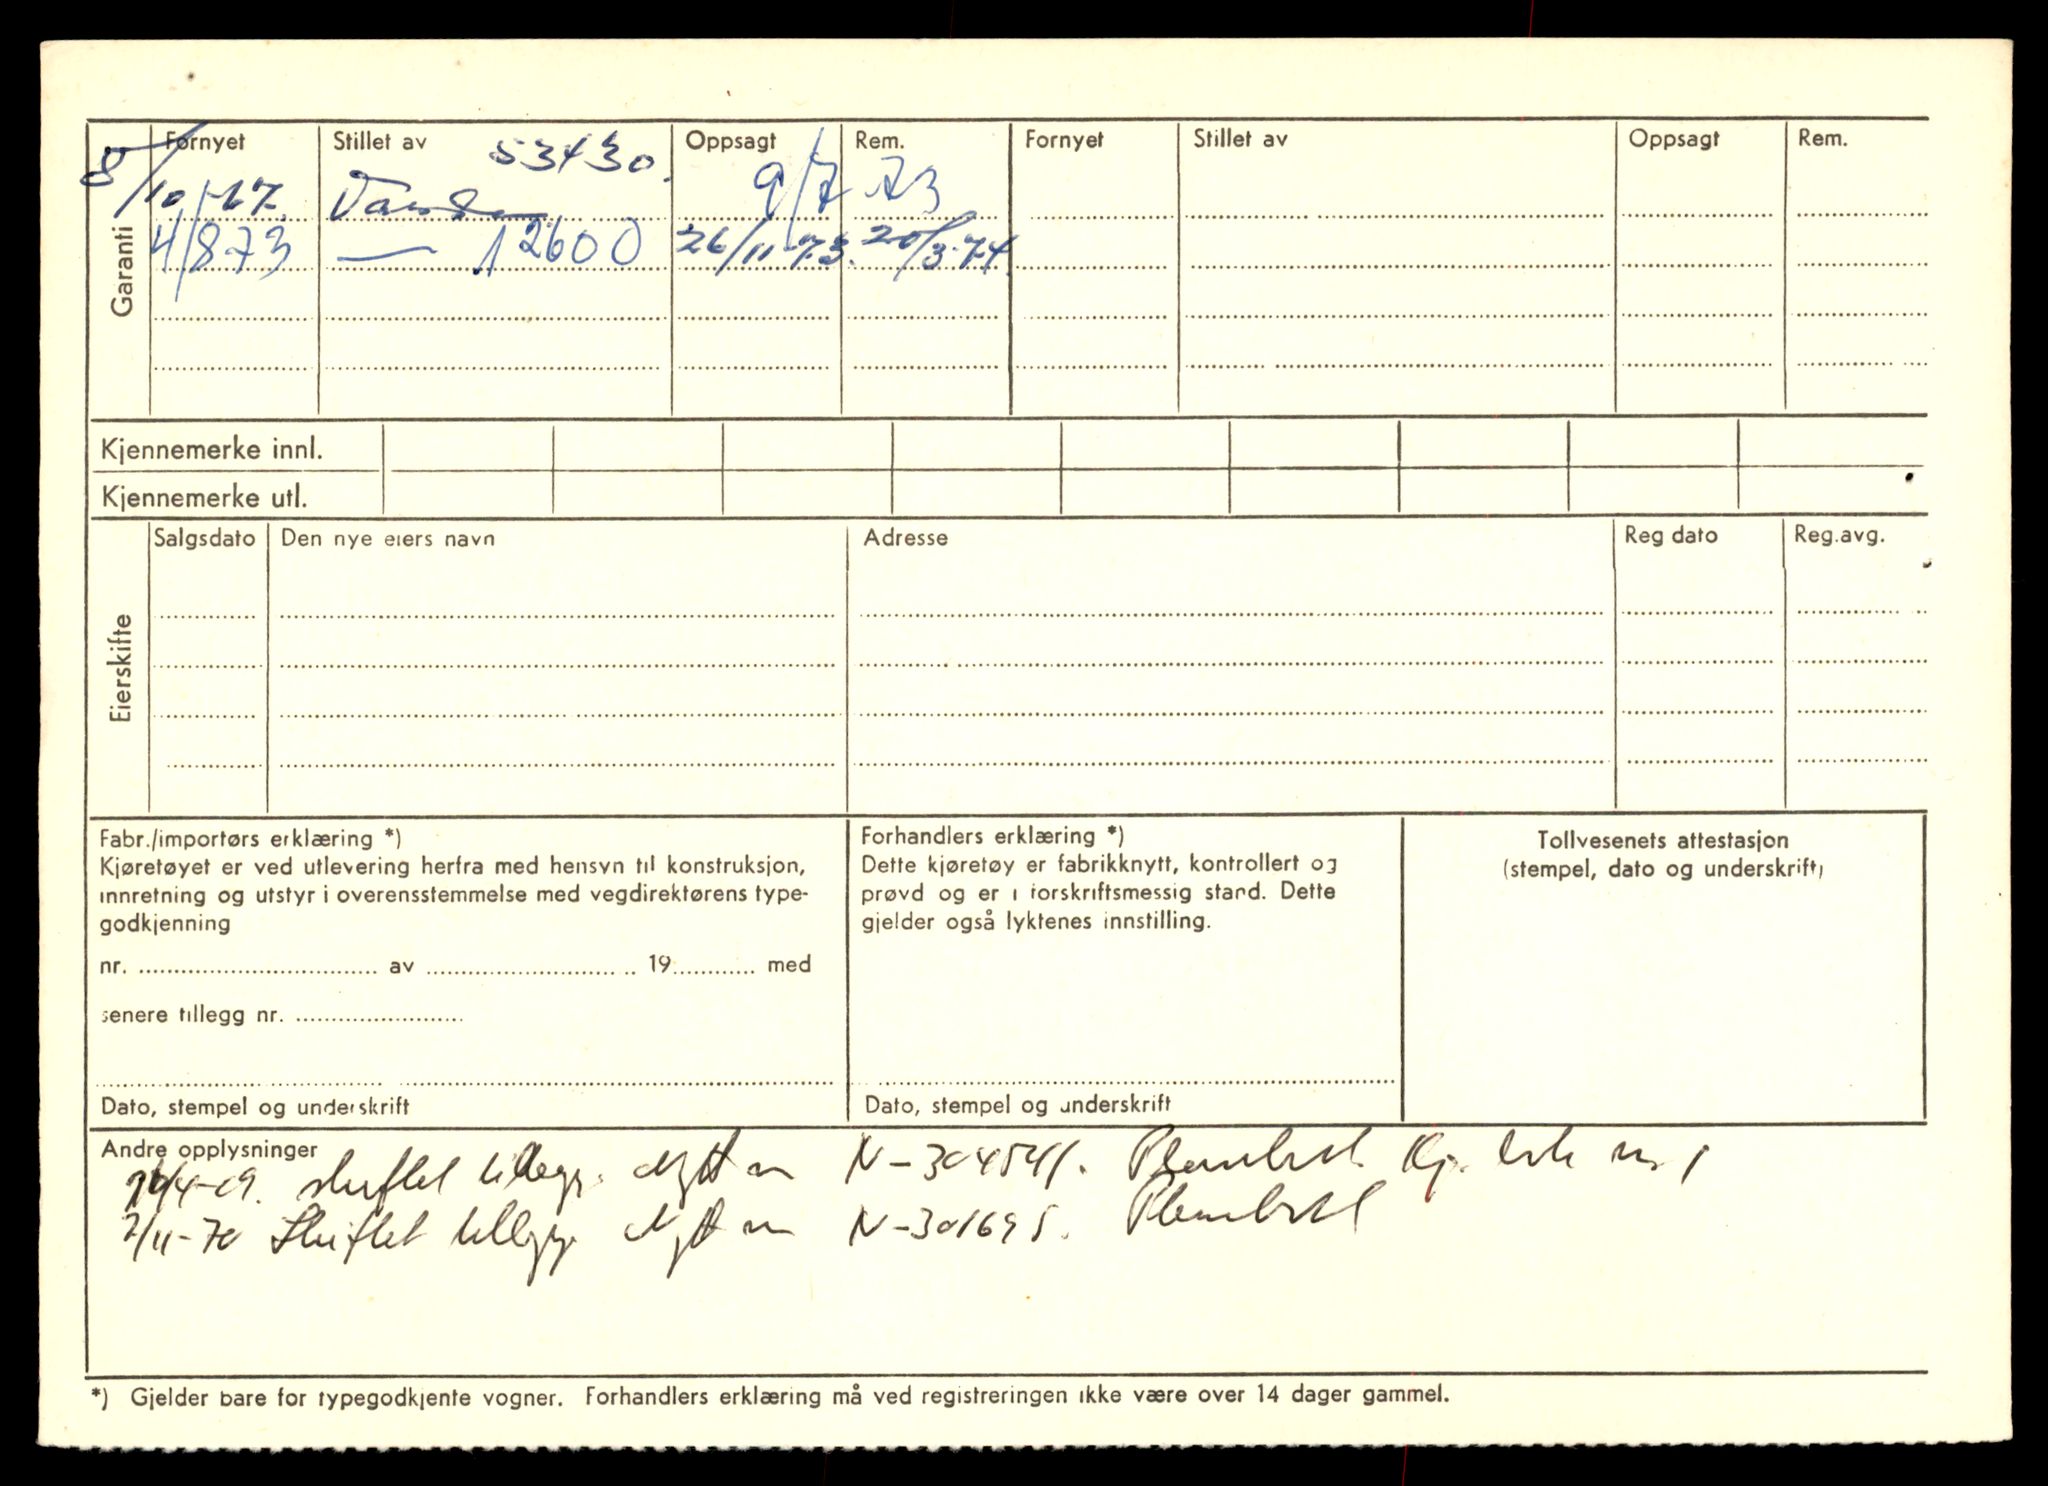 Garanti
Fornyet Stillet av 53430. Oppsagt Rem. Fornyet Stillet av Oppsagt Rem.
8/10-67. 9/7 73
4/8-73 — 12600 26/11-73. 20/3-74.
Kjennemerke innl.
Kjennemerke utl.
Eierskifte
Salgsdato Den nye eiers navn Adresse Reg dato Reg.avg.
Fabr./importørs erklæring *)
Kjøretøyet er ved utlevering herfra med hensyn til konstruksjon,
innretning og utstyr i overensstemmelse med vegdirektørens type-
godkjenning
nr. .......... av .......... 19.......... med
senere tillegg nr. ..........
Dato, stempel og underskrift
Forhandlers erklæring *)
Dette kjøretøy er fabrikknytt, kontrollert og
prøvd og er i forskriftsmessig stand. Dette
gjelder også lyktenes innstilling.
Dato, stempel og underskrift
Tollvesenets attestasjon
(stempel, dato og underskrift)
Andre opplysninger
skiftet N-304541.
2/11-70 Skiftet N-301695.
*) Gjelder bare for typegodkjente vogner. Forhandlers erklæring må ved registreringen ikke være over 14 dager gammel.